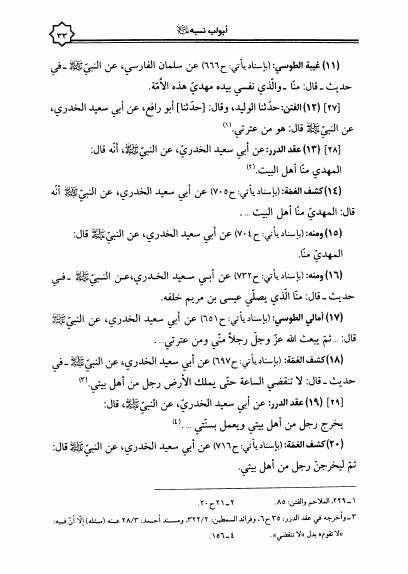 أبواب نسبه ﷺ
٣٣
(١١) غيبة الطوسي: (بإسناد يأتي: ح٦٦٦) عن سلمان الفارسي، عن النبيّ ﷺ ـ في
حديث ـ قال: منّا ـ والّذي نفسي بيده مهديّ هذه الأمّة.
[٢٧] (١٢) الفتن: حدّثنا الوليد، وقال: [حدّثنا] أبو رافع، عن أبي سعيد الخدري،
عن النبيّ ﷺ قال: هو من عترتي. (١)
[٢٨] (١٣) عقد الدرر: عن أبي سعيد الخدريّ، عن النبيّ ﷺ، أنّه قال:
المهدي منّا أهل البيت. (٢)
(١٤) كشف الغمّة: (بإسناد يأتي: ح٧٠٥) عن أبي سعيد الخدري، عن النبيّ ﷺ أنّه
قال: المهديّ منّا أهل البيت ... .
(١٥) ومنه: (بإسناد يأتي: ح٧٠٤) عن أبي سعيد الخدري، عن النبيّ ﷺ قال:
المهديّ منّا.
(١٦) ومنه: (بإسناد يأتي: ح٧٣٢) عن أبي سعيد الخدري، عن النبيّ ﷺ ـ في
حديث ـ قال: منّا الّذي يصلّي عيسى بن مريم خلفه.
(١٧) أمالي الطوسي: (بإسناد يأتي: ح٦٥١) عن أبي سعيد الخدري، عن النبيّ ﷺ
قال: ... ثمّ يبعث الله عزّ وجلّ رجلاً منّي ومن عترتي... .
(١٨) كشف الغمّة: (بإسناد يأتي: ح٦٩٧) عن أبي سعيد الخدري، عن النبيّ ﷺ ـ في
حديث ـ قال: لا تنقضي الساعة حتّى يملك الأرض رجل من أهل بيتي (٣)
[٢٩] (١٩) عقد الدرر: عن أبي سعيد الخدريّ، عن النبيّ ﷺ، قال:
يخرج رجل من أهل بيتي ويعمل بسنّتي ... . (٤)
(٢٠) كشف الغمّة: (بإسناد يأتي: ح٧١٦) عن أبي سعيد الخدري، عن النبيّ ﷺ قال:
ثمّ ليخرجنّ رجل من أهل بيتي.
١ ـ ٢٢٩، الملاحم والفتن: ٨٥. ٢ ـ ٢١ ح ٢٠.
٣ ـ وأخرجه في عقد الدرر: ٣٥ ح٦، وفرائد السمطين: ٣٢٢/٢، ومسند أحمد: ٢٨/٣ عنه (مثله) إلّا أنّ فيه:
«لا تقوم» بدل «لا تنقضي». ٤ ـ ١٥٦.